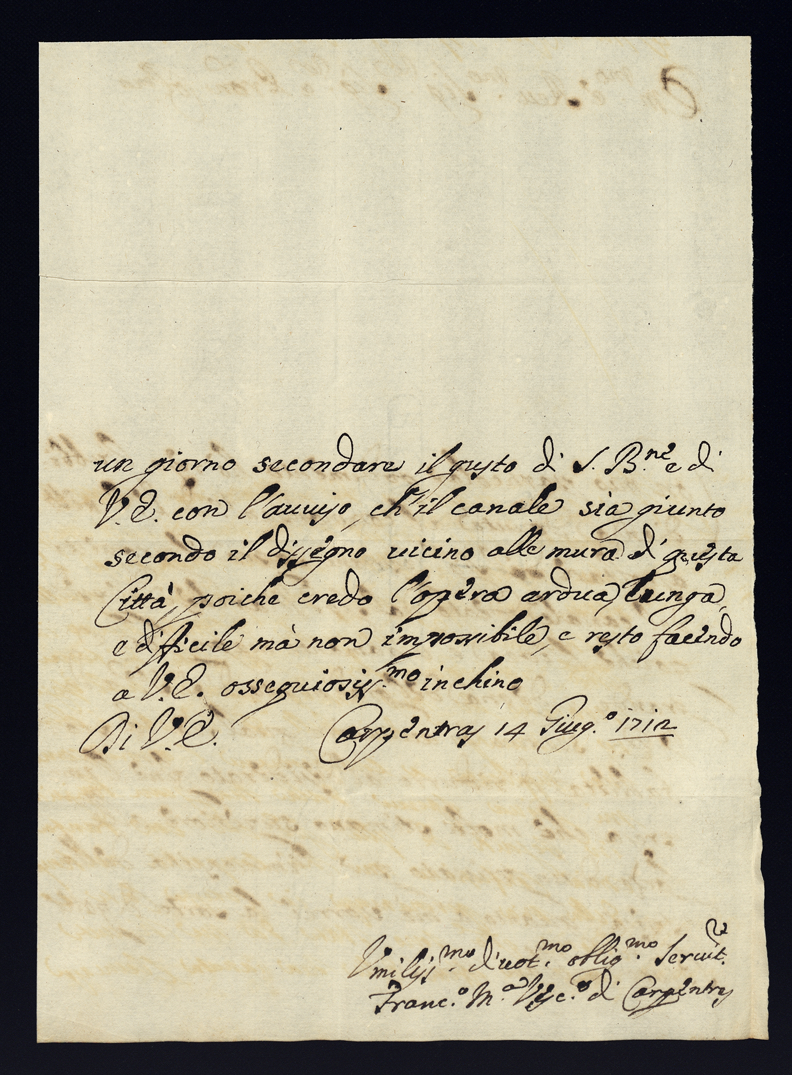 un giorno secondare il gusto di S. B.ne e di
V.E. con l'auuiso, ch'il canale sia giunto
secondo il disegno uicino alle mura di questa
Città, poiche credo l'opera ardua, lunga,
e difficile mà non impossibile, e resto facendo
a V.E. ossequiosiss.mo inchino
Di V.E. Carpentras 14 Giug.o 1712
Vmiliss.mo diuot.mo oblig.mo Seruit.re
Franc.o M.a Vesc.o di Carpentras